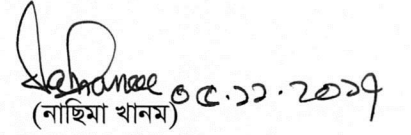 ০৫.১১.২০১৭
(নাছিমা খানম)